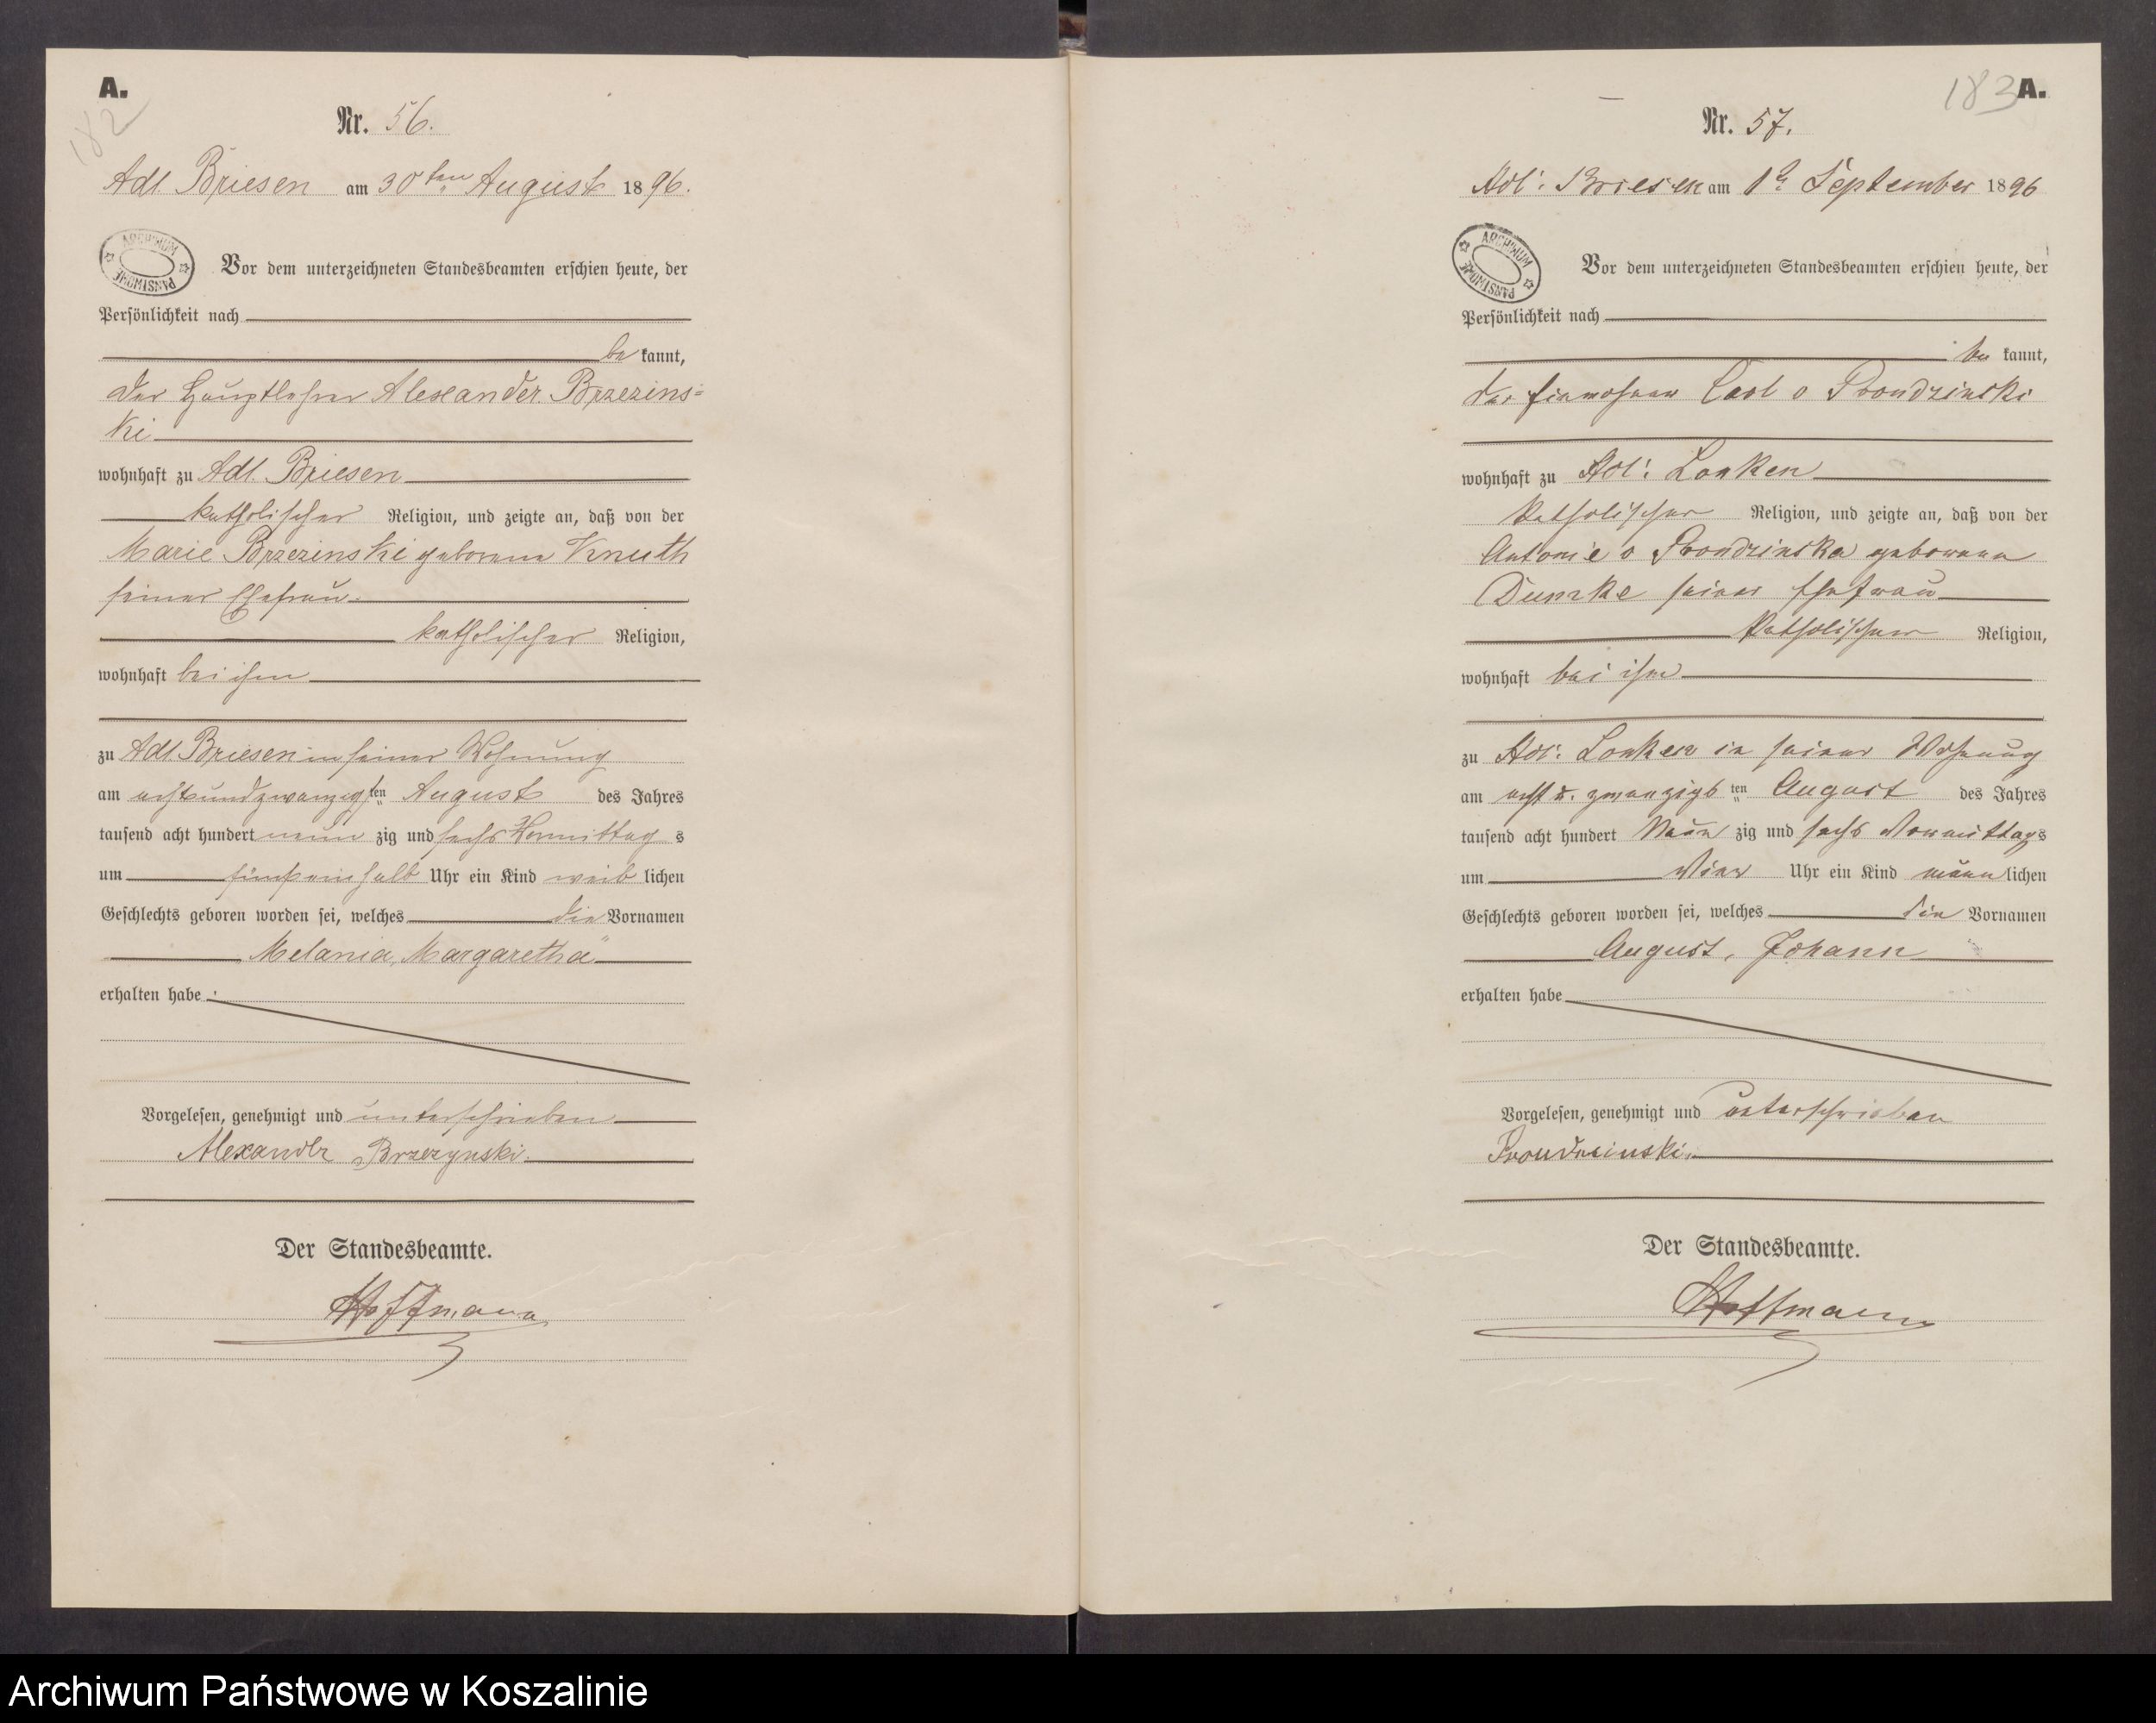 A.
182
Nr. 56.
Adl. Briesen am 30ten August 1896.
ARCHIWUM PAŃSTWOWE
Vor dem unterzeichneten Standesbeamten erschien heute, der
Persönlichkeit nach
be kannt,
der Hauptlehrer Alexander Brzezins=
ki
wohnhaft zu Adl. Briesen
katholischer Religion, und zeigte an, daß von der
Marie Brzezinski geborene Knuth
seiner Ehefrau
katholischer Religion,
wohnhaft bei ihm
zu Adl. Briesen in seiner Wohnung
am achtundzwanzigsten August des Jahres
tausend acht hundert neun zig und sechs Vormittag s
um fünfeinhalb Uhr ein Kind weib lichen
Geschlechts geboren worden sei, welches die Vornamen
Melania, Margaretha
erhalten habe.
Vorgelesen, genehmigt und unterschrieben
Alexander Brzezynski.
Der Standesbeamte.
Hoffmann
183 A.
Nr. 57.
Adl: Briesen am 1t September 1896
ARCHIWUM PAŃSTWOWE
Vor dem unterzeichneten Standesbeamten erschien heute, der
Persönlichkeit nach
be kannt,
der Carl v Prondzinski
wohnhaft zu Adl: Lonken
katholischer Religion, und zeigte an, daß von der
Antonie v Prondzinska geborenen
seiner Ehefrau
katholischer Religion,
wohnhaft bei ihm
zu Adl: Lonken in seiner Wohnung
am acht u. zwanzigsten August des Jahres
tausend acht hundert Neun zig und sechs Vormittags
um Vier Uhr ein Kind männ lichen
Geschlechts geboren worden sei, welches die Vornamen
August, Johann
erhalten habe
Vorgelesen, genehmigt und unterschrieben
Prondzinski.
Der Standesbeamte.
Hoffmann
Archiwum Państwowe w Koszalinie